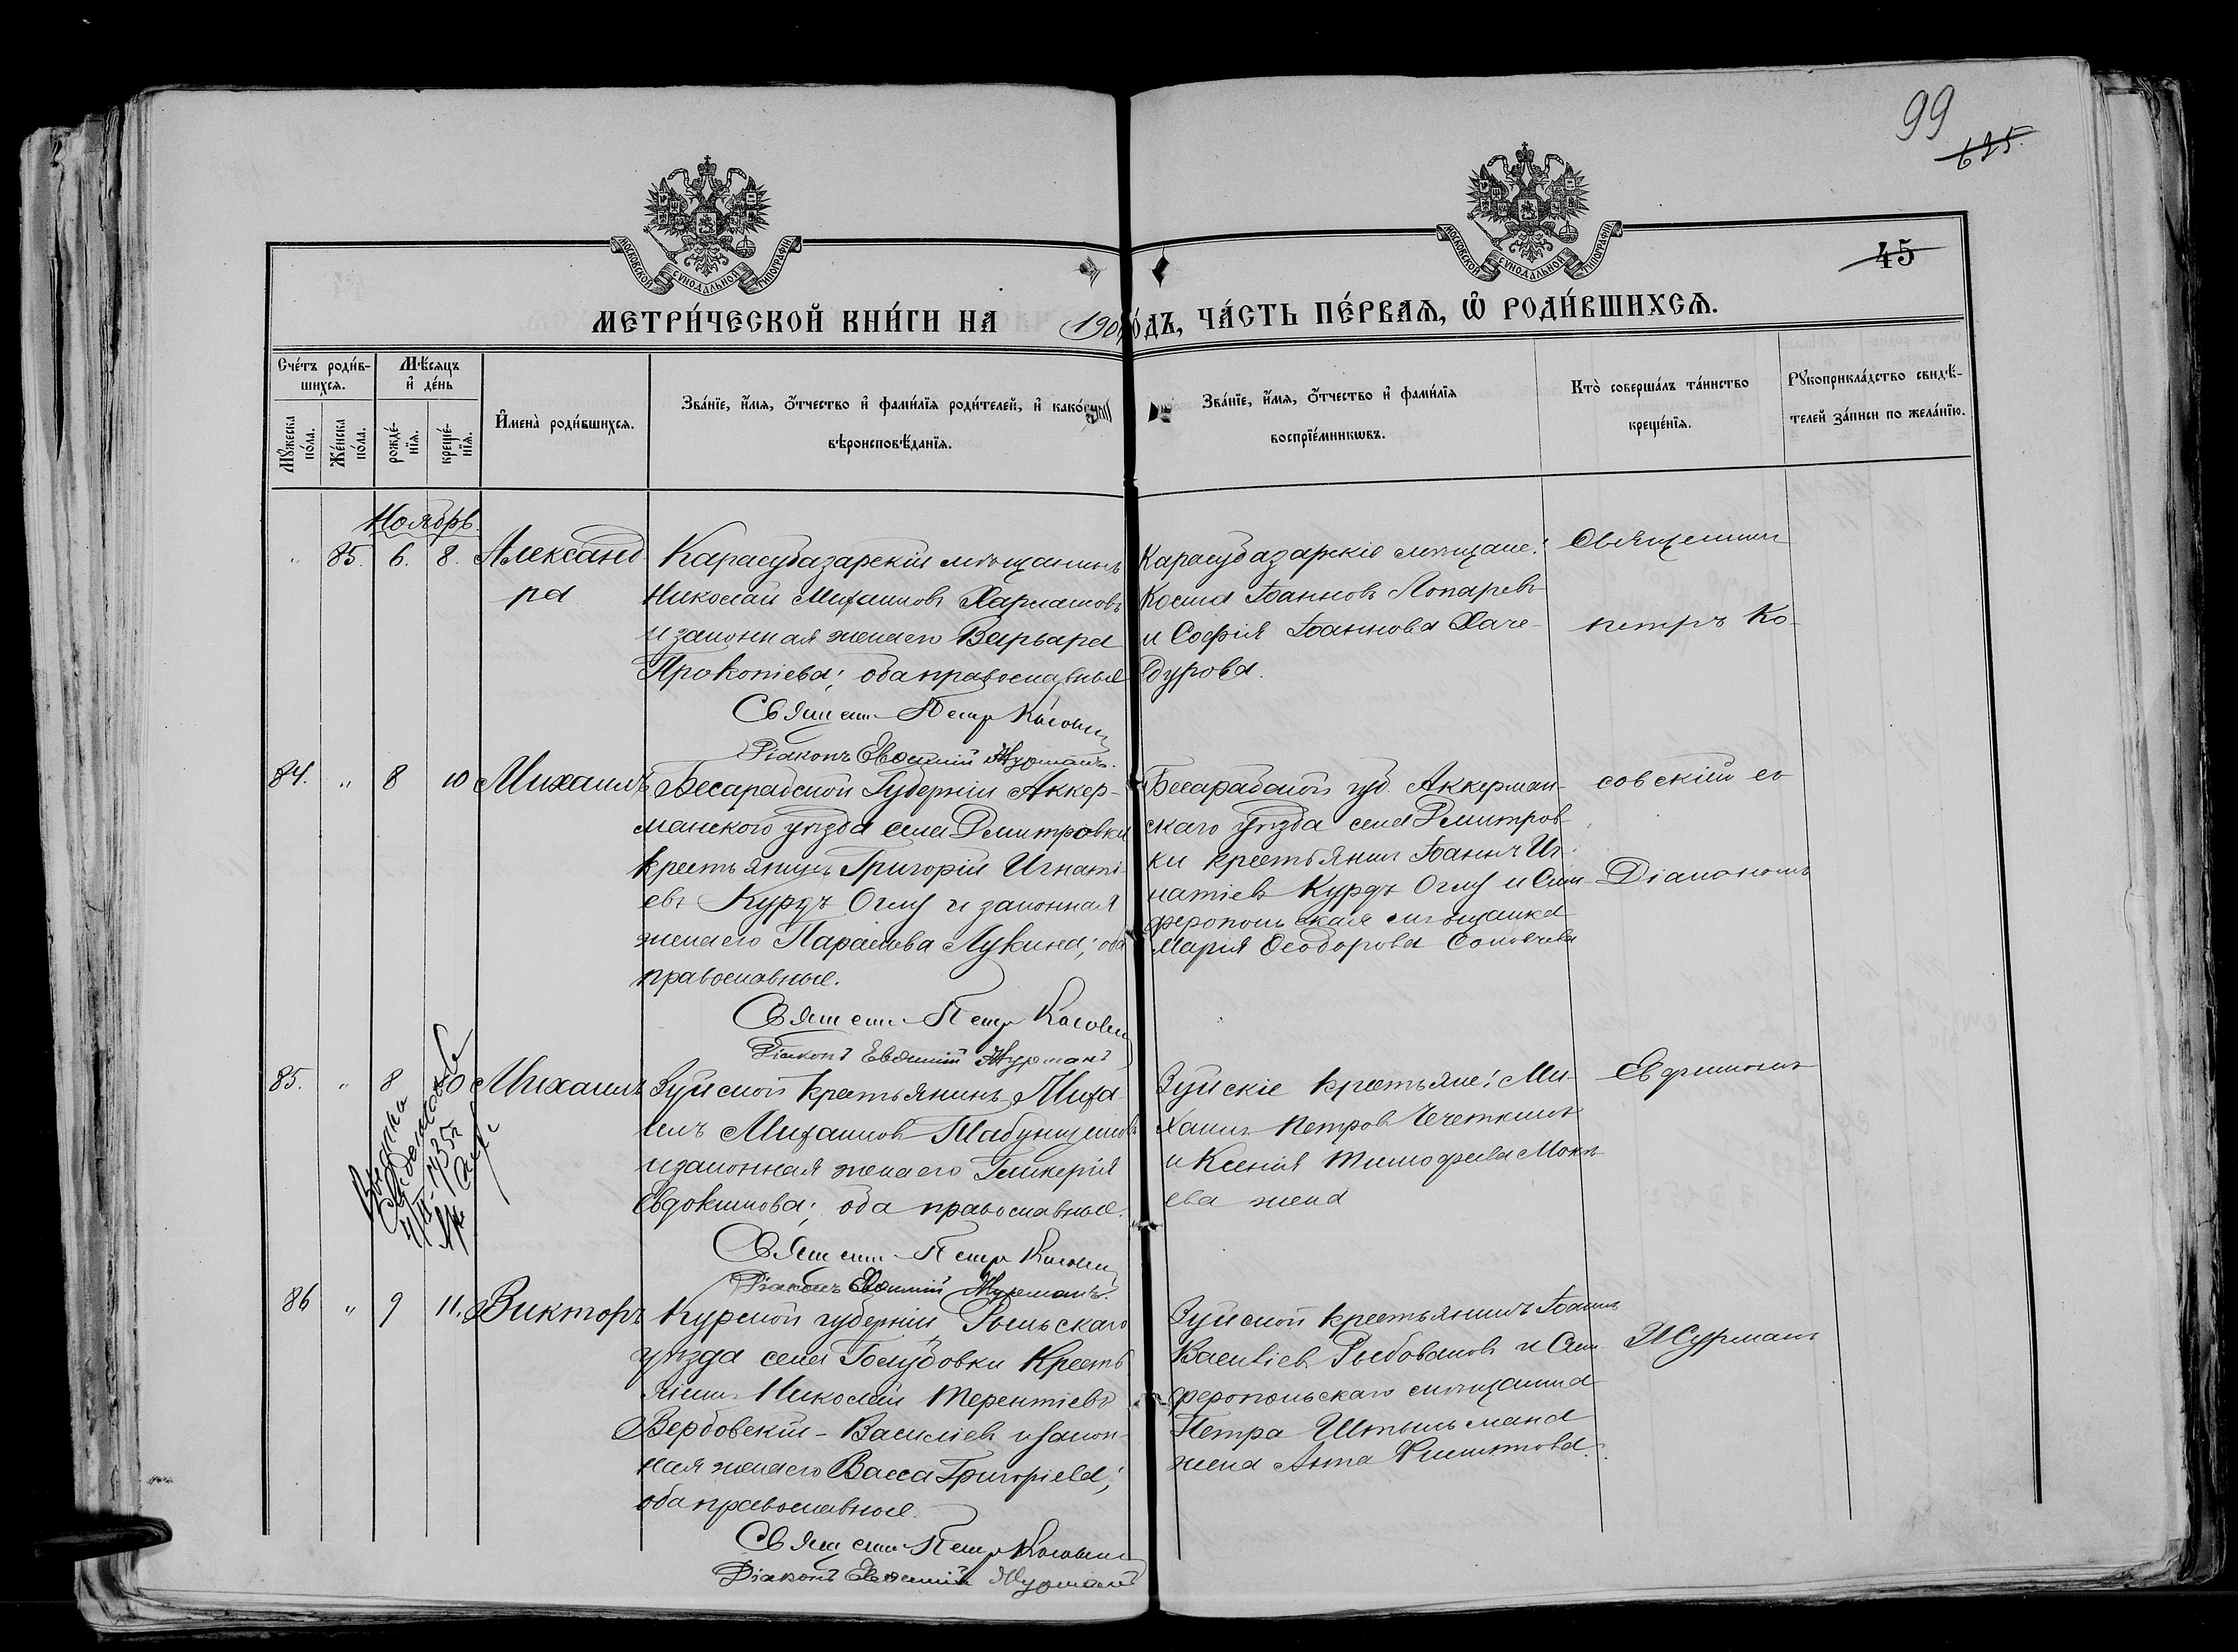 99
625.
45
МОСКОВСКОЙ СУНОДАЛЬНОЙ ТИПОГРАФІИ
МОСКОВСКОЙ СУНОДАЛЬНОЙ ТИПОГРАФІИ
МЕТРИ́ЧЕСКОЙ КНИ́ГИ НА 190 ГО́ДЪ, ЧА́СТЬ ПЕ́РВАѦ, Ѽ РОДИ́ВШИХСѦ.
Сче́тъ роди́в-
шихсѧ.
Мꙋжеска по́ла.
Же́нска по́ла.
Мѣ́сѧцъ и҆ де́нь
рожде́-нїѧ.
креще́-нїѧ.
И҆мена̀ роди́вшихсѧ.
Зва́нїе, и҆́мѧ, ѻ҆́тчество и҆ фами́лїѧ роди́телей, и҆ како́гѡ
вѣроисповѣ́данїѧ.
Зва́нїе, и҆́мѧ, ѻ҆́тчество и҆ фами́лїѧ
воспрїе́мникѡвъ.
Кто̀ соверша́лъ та́инство
креще́нїѧ.
Рꙋкоприкла́дство свидѣ́-
телей за́писи по жела́нїю.
Ноябрь.
" 85. 6. 8. Александ
ра
Карасубазарскій мѣщанинъ
Николай Михаиловъ Харлашовъ
и законная жена его Варвара
Прокопіева; оба православные
Священ. Петр Косовск
Діаконъ Евѳимій Журманъ.
Карасубазарскіе мѣщане:
Косма Іоанновъ Лопаревъ
и Софія Іоаннова Хаче-
дурова.
Священник
петръ Ко-
84. " 8 10 Михаилъ
Бесарабской Губерніи Аккер-
манского уѣзда села Дмитровки
крестьянинъ Григорій Игнаті-
евъ Курдъ Оглу и законная
жена его Параскева Лукина; оба
православные.
Священ. Петр Косовск
Діаконъ Евѳимій Журманъ
Бесарабской губ. Аккерман-
скаго уѣзда села Дмитров-
ки крестьянин Іоаннъ Иг-
натіевъ Курдъ Оглу и Сим-
феропольская мѣщанка
Марія Ѳеодорова
совскій съ
Діакономъ
85. " 8 10 Михаилъ
Выдано
4/II-1935г
Зуйской крестьянинъ Миха-
илъ Михаиловъ Табунщиковъ
и законная жена его Гликерія
Евдокимова; оба православные.
Священ. Петр Косовск
Діаконъ Евѳимій Журманъ.
Зуйскіе крестьяне: Ми-
хаилъ Петровъ Чечеткинъ
и Ксенія Тимофеева Мокѣ-
ева жена
Евфиміемъ
86 " 9 11. Викторъ
Курской губерніи Рыльскаго
уѣзда села Голубовки Кресть
янинъ Николай Терентіевъ
Вербовскій - Василіевъ и закон-
ная жена его Васса Григоріева;
оба православные.
Священ. Петр Косовск
Діаконъ Евѳимій Журманъ
Зуйской крестьянинъ Іоаннъ
Василіевъ Рыбоваловъ и Сим
феропольскаго мѣщанина
Петра Штыльмана
жена Анна Филиппова.
Журманъ